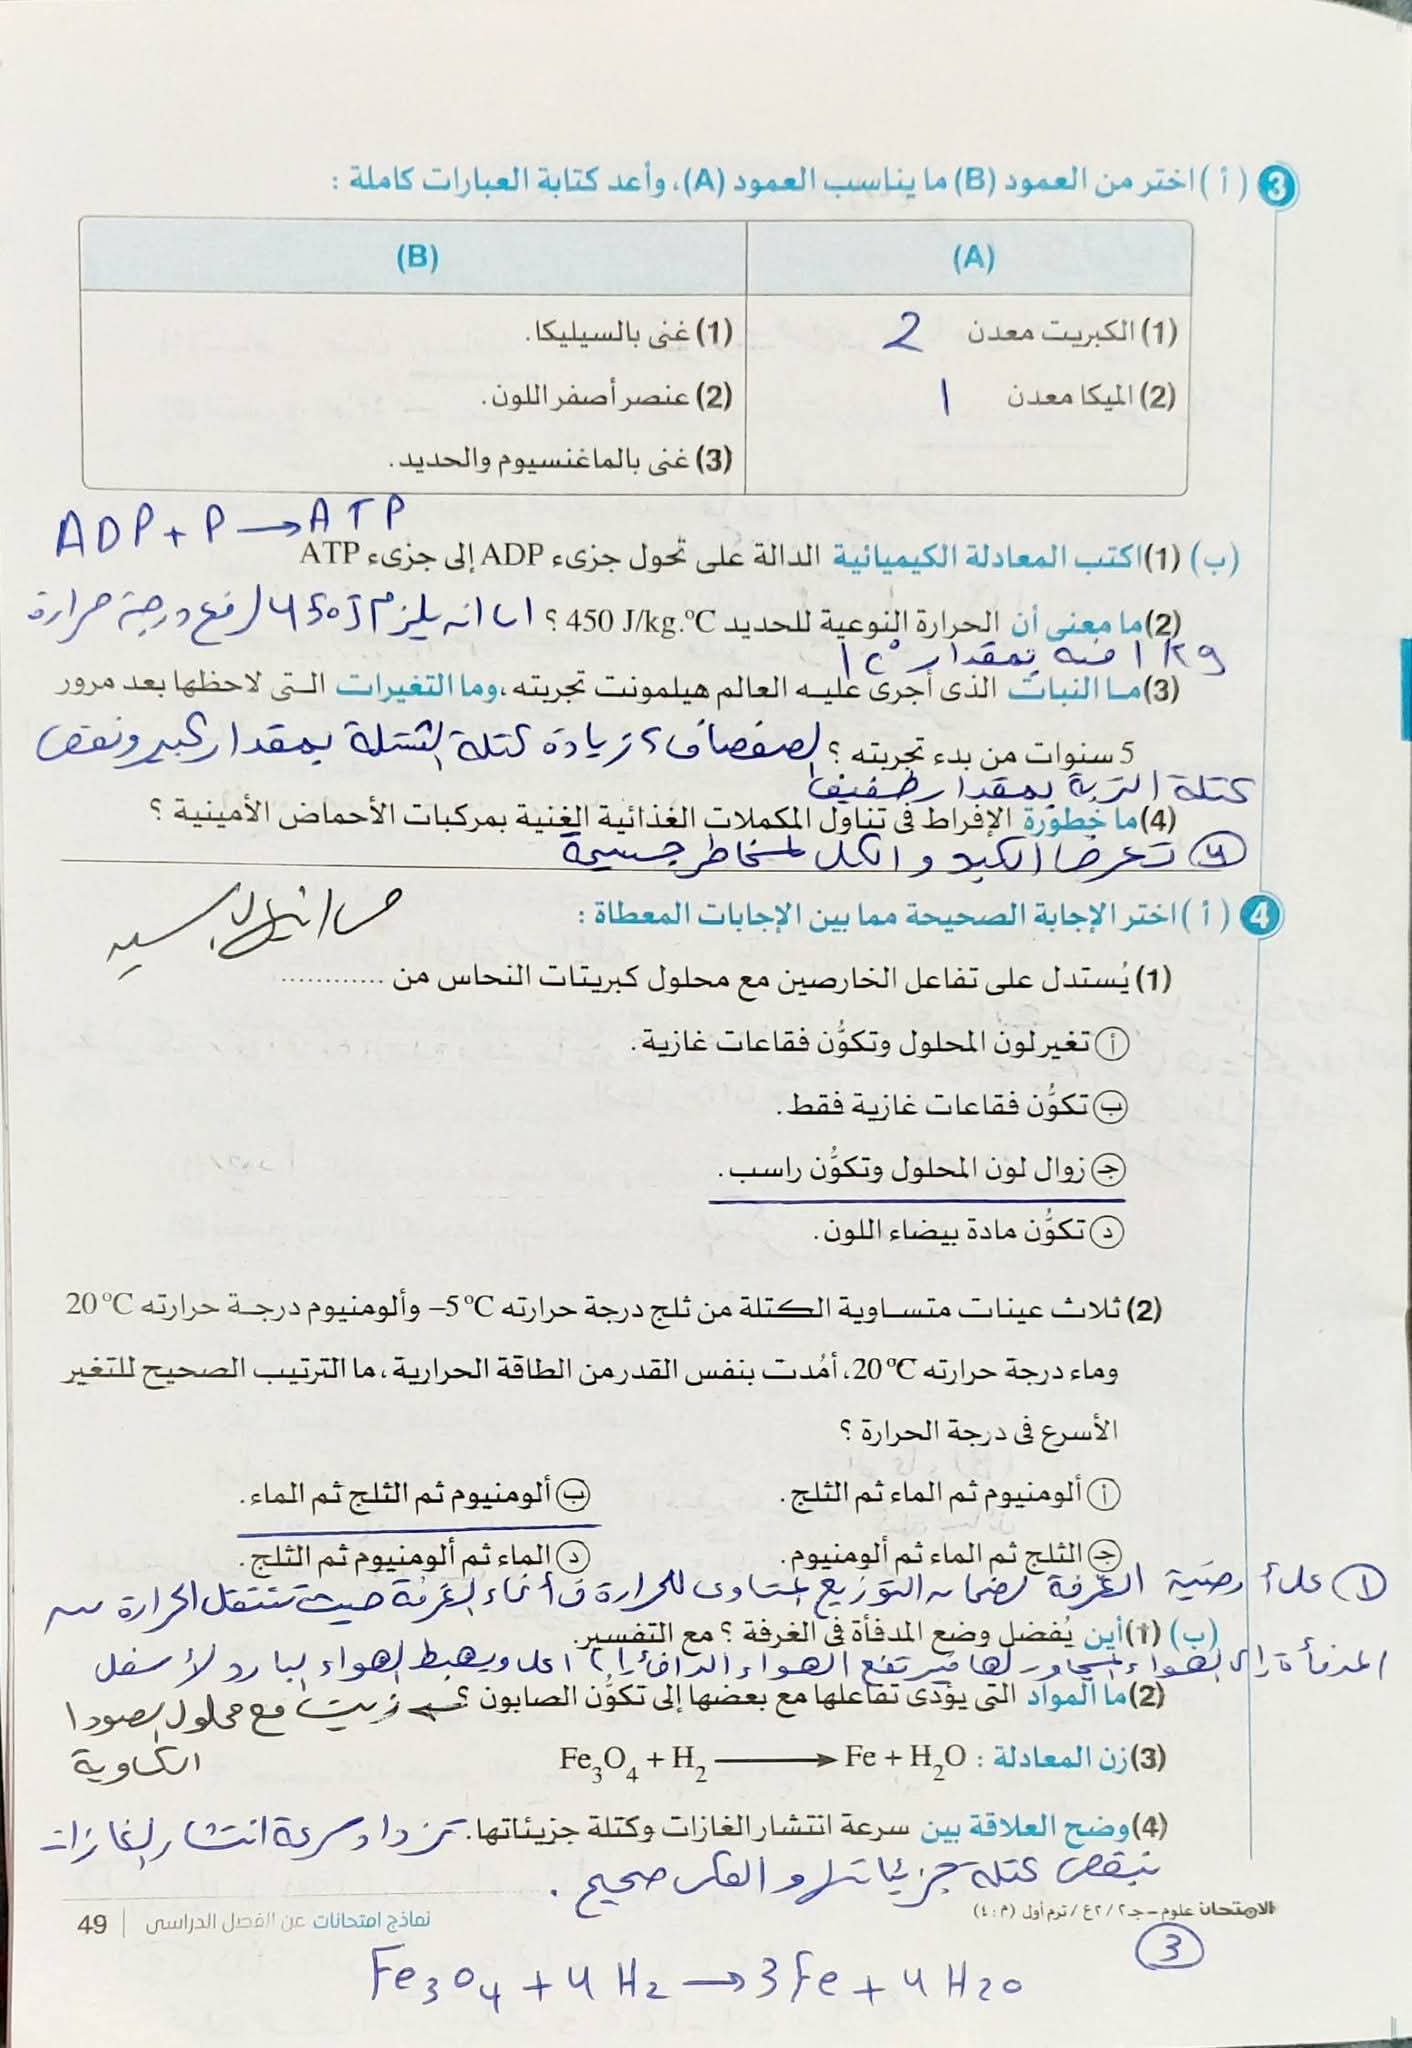 3 (أ) اختر من العمود (B) ما يناسب العمود (A)، وأعد كتابة العبارات كاملة :
(A) (B)
(1) الكبريت معدن 2 (1) غنى بالسيليكا.
(2) الميكا معدن 1 (2) عنصر أصفر اللون.
(3) غنى بالماغنسيوم والحديد.
ADP + P → ATP
(ب) (1) اكتب المعادلة الكيميائية الدالة على تحول جزىء ADP إلى جزىء ATP
(2) ما معنى أن الحرارة النوعية للحديد 450 J/kg.°C ؟ اى انه يلزم 450J لرفع درجة حرارة
1kg منه بمقدار 1c°
(3) مـا النبات الذى أجرى عليـه العالم هيلمونت تجربته، وما التغيرات الـتى لاحظها بعد مرور
5 سنوات من بدء تجربته ؟ الصفصاف، زيادة كتلة الشتلة بمقدار كبير ونقص
كتلة التربة بمقدار طفيف
(4) ما خطورة الإفراط فى تناول المكملات الغذائية الغنية بمركبات الأحماض الأمينية ؟
(4) تعرض الكبد والكلى لمخاطر جسيمة
4 (أ) اختر الإجابة الصحيحة مما بين الإجابات المعطاة :
(1) يُستدل على تفاعل الخارصين مع محلول كبريتات النحاس من ............
أ تغير لون المحلول وتكوُّن فقاعات غازية.
ب تكوُّن فقاعات غازية فقط.
جـ زوال لون المحلول وتكوُّن راسب.
د تكوُّن مادة بيضاء اللون.
(2) ثلاث عينات متسـاوية الكتلة من ثلج درجة حرارته 5°C– وألومنيوم درجـة حرارته 20°C
وماء درجة حرارته 20°C، أُمدت بنفس القدر من الطاقة الحرارية، ما الترتيب الصحيح للتغير
الأسرع فى درجة الحرارة ؟
أ ألومنيوم ثم الماء ثم الثلج. ب ألومنيوم ثم الثلج ثم الماء.
جـ الثلج ثم الماء ثم ألومنيوم. د الماء ثم ألومنيوم ثم الثلج.
(1) على أرضية الغرفة لضمان التوزيع المتساوى للحرارة فى أنحاء الغرفة حيث تنتقل الحرارة من
(ب) (1) أين يُفضل وضع المدفأة فى الغرفة ؟ مع التفسير.
المدفأة إلى الهواء المجاور لها فيرتفع الهواء الدافئ إلى أعلى ويهبط الهواء البارد لأسفل
(2) ما المواد التى يؤدى تفاعلها مع بعضها إلى تكوُّن الصابون ؟ ← زيت مع محلول الصودا
الكاوية
(3) زن المعادلة : Fe₃O₄ + H₂ ⟶ Fe + H₂O
(4) وضح العلاقة بين سرعة انتشار الغازات وكتلة جزيئاتها. تزداد سرعة انتشار الغازات
بنقص كتلة جزيئاتها والعكس صحيح .
الامتحان علوم – جـ٢ / ٢ع / ترم أول (م : ٤) نماذج امتحانات عن الفصل الدراسى | 49
(3)
Fe₃O₄ + 4H₂ → 3Fe + 4H₂O